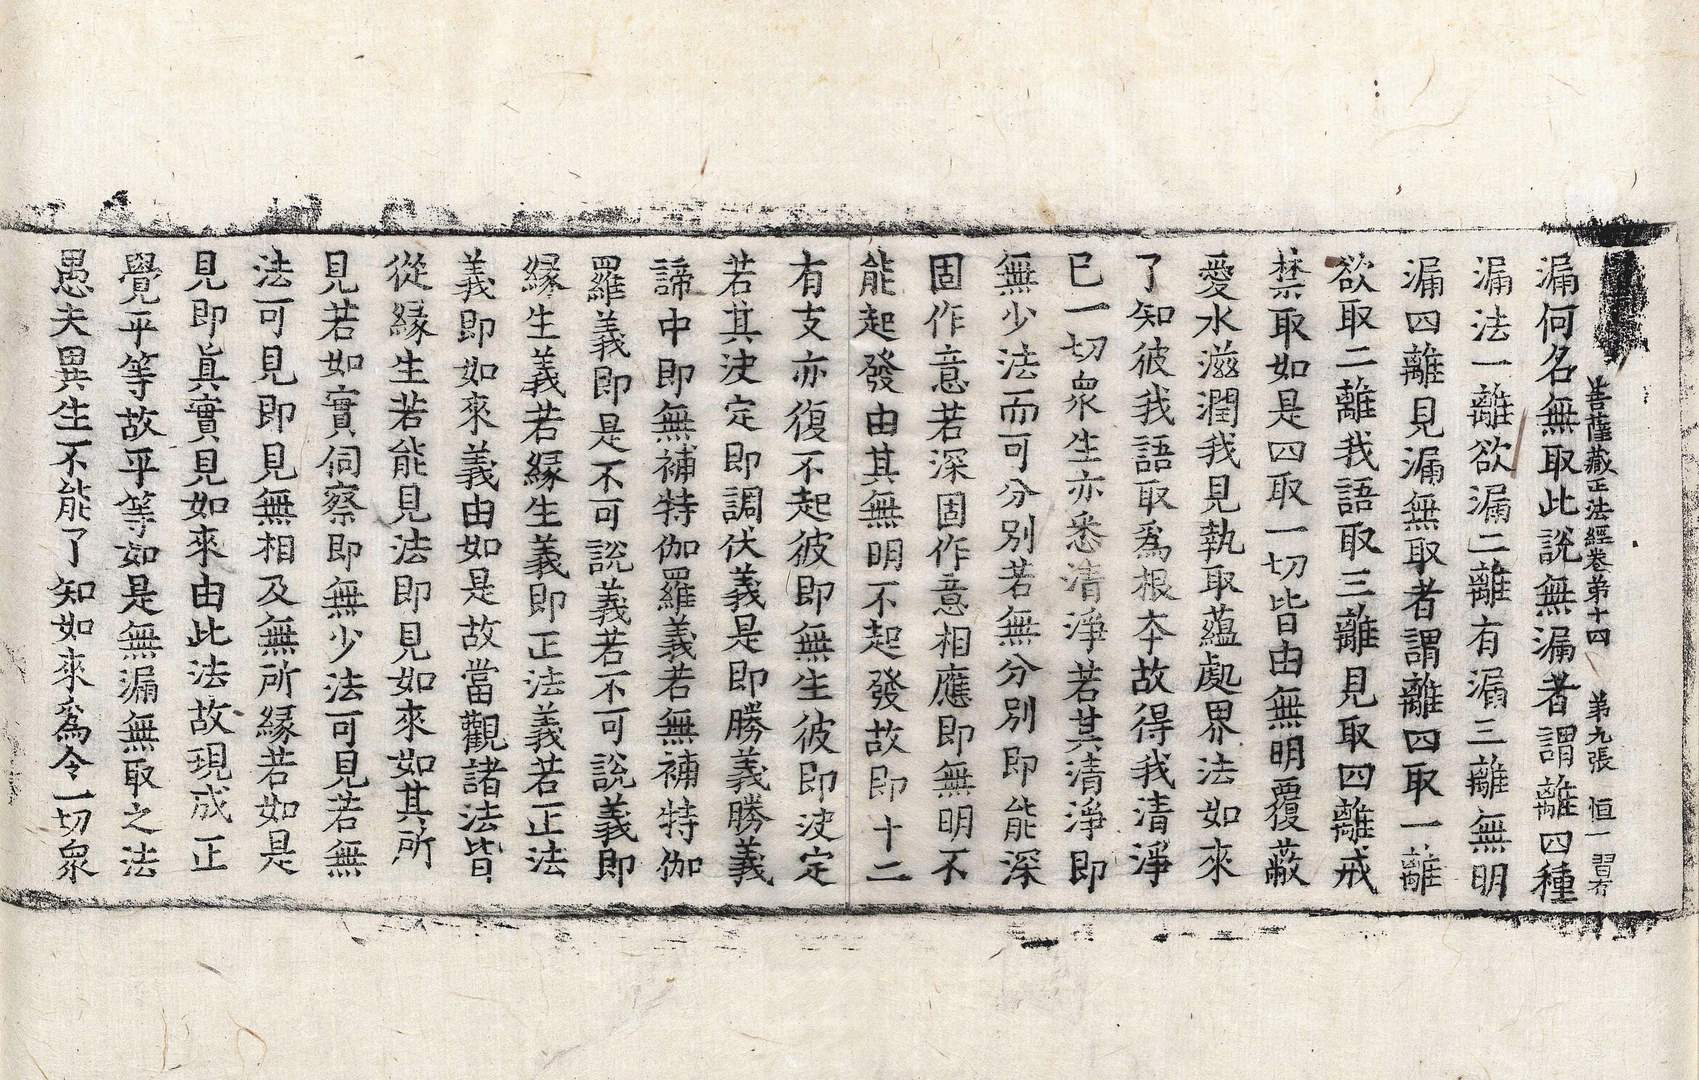 菩薩藏正法經卷第十四 第九張 恒一 習有
漏何名無取此說無漏者謂離四種
漏法一離欲漏二離有漏三離無明
漏四離見漏無取者謂離四取一離
欲取二離我語取三離見取四離戒
禁取如是四取一切皆由無明覆蔽
愛水滋潤我見執取蘊處界法如來
了知彼我語取爲根本故得我清淨
已一切衆生亦悉清淨若其清淨即
無少法而可分別若無分別即能深
固作意若深固作意相應即無明不
能起發由其無明不起發故即十二
有支亦復不起彼即無生彼即决定
若其决定即調伏義是即勝義勝義
諦中即無補特伽羅義若無補特伽
羅義即是不可說義若不可說義即
緣生義若緣生義即正法義若正法
義即如來義由如是故當觀諸法皆
從緣生若能見法即見如來如其所
見若如實伺察即無少法可見若無
法可見即見無相及無所緣若如是
見即眞實見如來由此法故現成正
覺平等故平等如是無漏無取之法
愚夫異生不能了知如來爲令一切衆